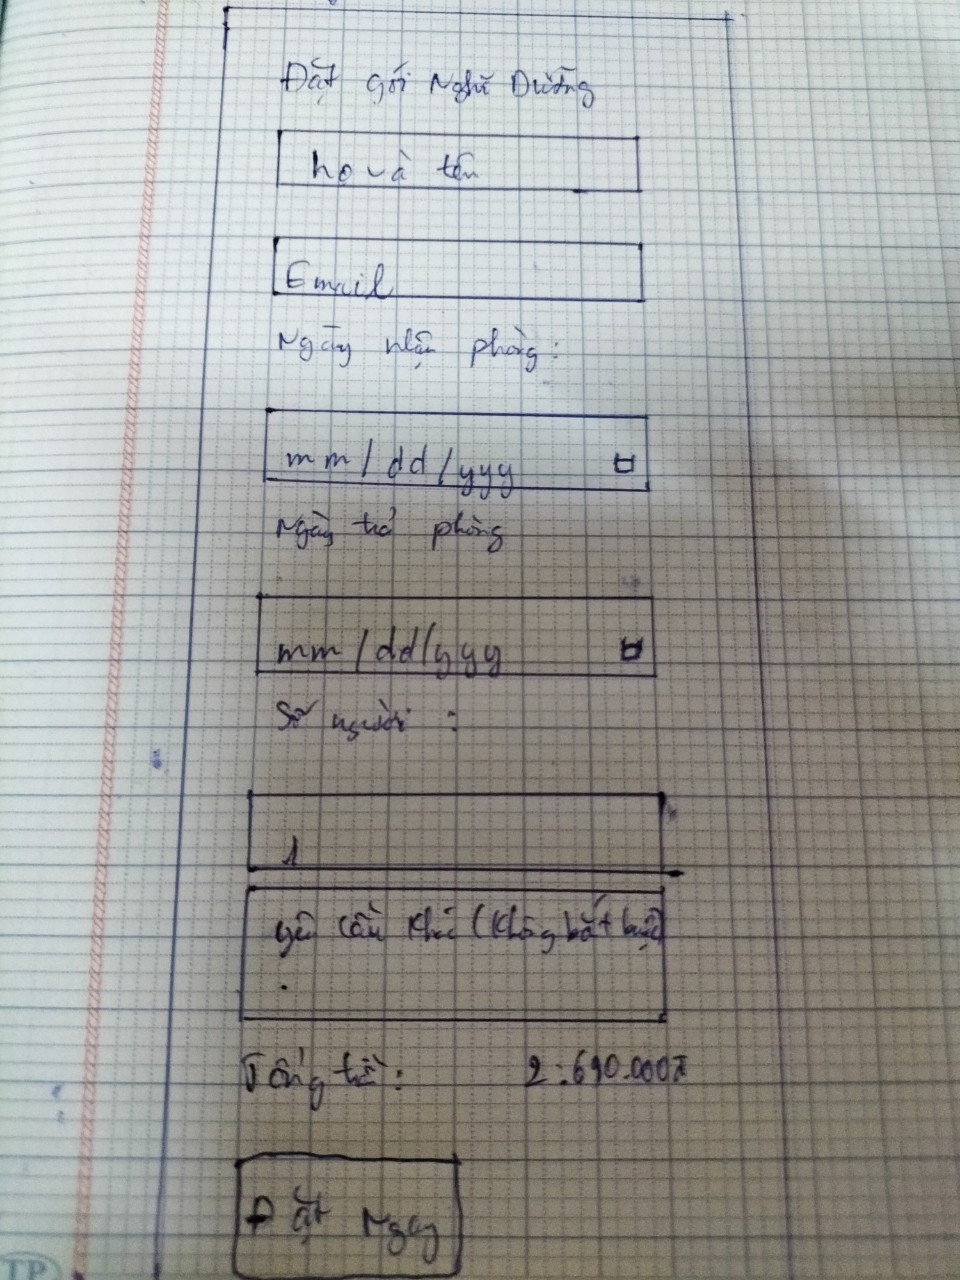 Đặt gói Nghỉ Dưỡng
họ và tên
Email
Ngày nhận phòng:
mm/dd/yyy
Ngày trả phòng
mm/dd/yyy
Số người :
1
yêu cầu khác (không bắt buộc)
Tổng tiền: 2.690.000đ
Đặt Ngay
TP